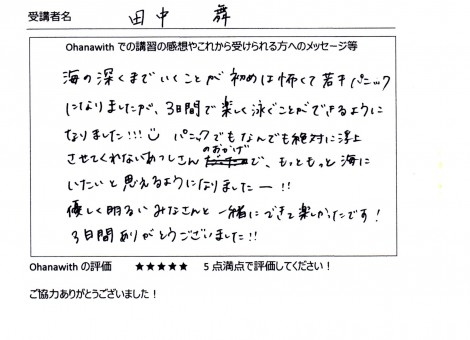 受講者名 田中 舞
Ohanawith での講習の感想やこれから受けられる方へのメッセージ等
海の深くまでいくことが初めは怖くて若干パニック
になりましたが、3日間で楽しく泳ぐことができるように
なりました!!! パニックでもなんでも絶対に浮上
させてくれないあつしさんのおかげで、もっともっと海に
いたいと思えるようになりましたー!!
優しく明るいみなさんと一緒にできて楽しかったです!
3日間ありがとうございました!!
Ohanawith の評価 ★★★★★ 5点満点で評価してください!
ご協力ありがとうございました!